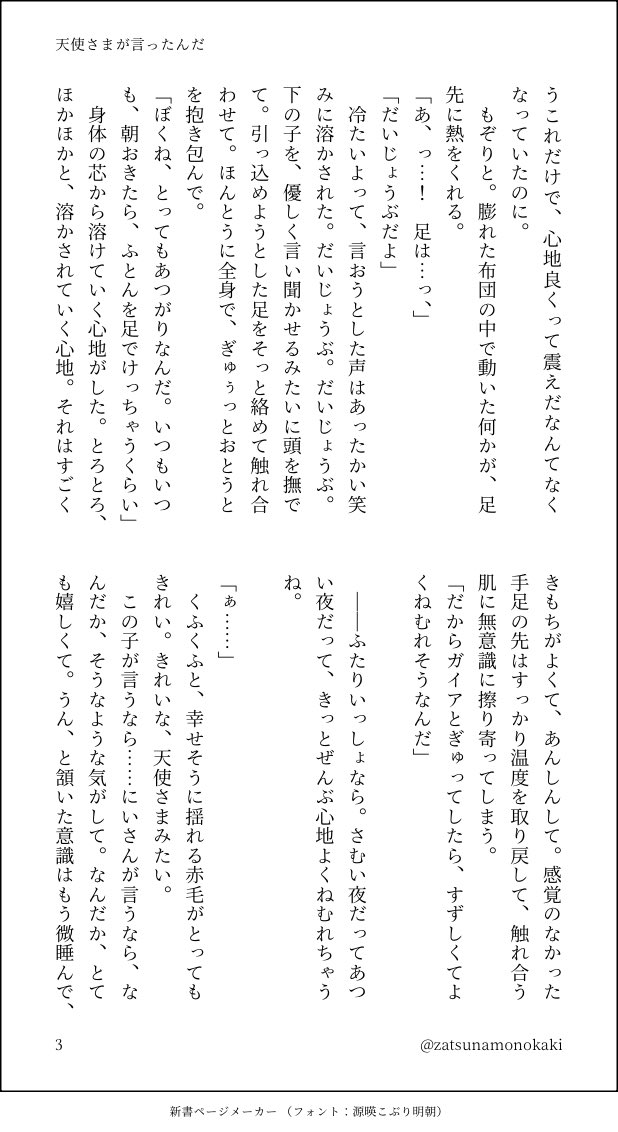 天使さまが言ったんだ
うこれだけで、心地良くって震えだなんてなく
なっていたのに。
　もぞりと。膨れた布団の中で動いた何かが、足
先に熱をくれる。
「あ、っ…！　足は…っ、」
「だいじょうぶだよ」
　冷たいよって、言おうとした声はあったかい笑
みに溶かされた。だいじょうぶ。だいじょうぶ。
下の子を、優しく言い聞かせるみたいに頭を撫で
て。引っ込めようとした足をそっと絡めて触れ合
わせて。ほんとうに全身で、ぎゅぅっとおとうと
を抱き包んで。
「ぼくね、とってもあつがりなんだ。いつもいつ
も、朝おきたら、ふとんを足でけっちゃうくらい」
　身体の芯から溶けていく心地がした。とろとろ、
ほかほかと、溶かされていく心地。それはすごく
きもちがよくて、あんしんして。感覚のなかった
手足の先はすっかり温度を取り戻して、触れ合う
肌に無意識に擦り寄ってしまう。
「だからガイアとぎゅってしたら、すずしくてよ
くねむれそうなんだ」
　――ふたりいっしょなら。さむい夜だってあつ
い夜だって、きっとぜんぶ心地よくねむれちゃう
ね。
「ぁ……」
　くふくふと、幸せそうに揺れる赤毛がとっても
きれい。きれいな、天使さまみたい。
　この子が言うなら……にいさんが言うなら、な
んだか、そうなような気がして。なんだか、とて
も嬉しくて。うん、と頷いた意識はもう微睡んで、
3
@zatsunamonokaki
新書ページメーカー（フォント：源暎こぶり明朝）